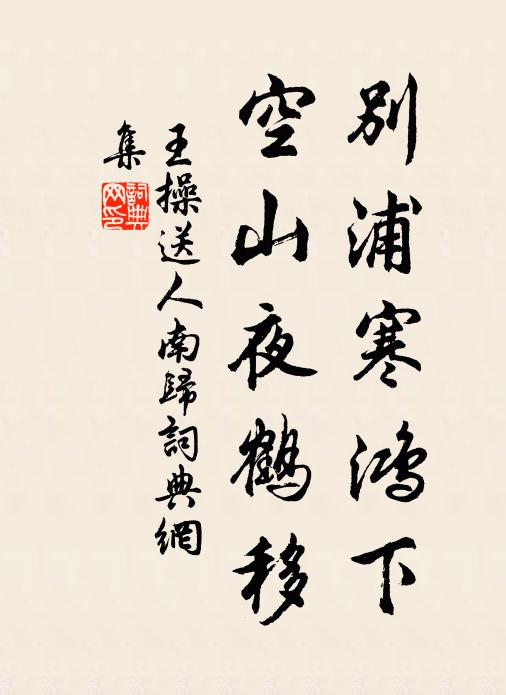 別浦寒鴻下
空山夜鶴移
王操送人南歸詞典網
集
詞典網印